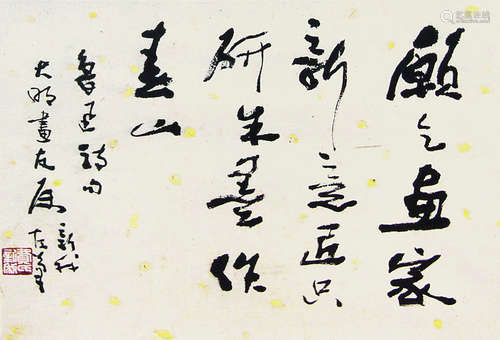 願乞畫家
新意匠只
研朱墨作
春山
魯迅詩句
大明畫友属
新我左筆